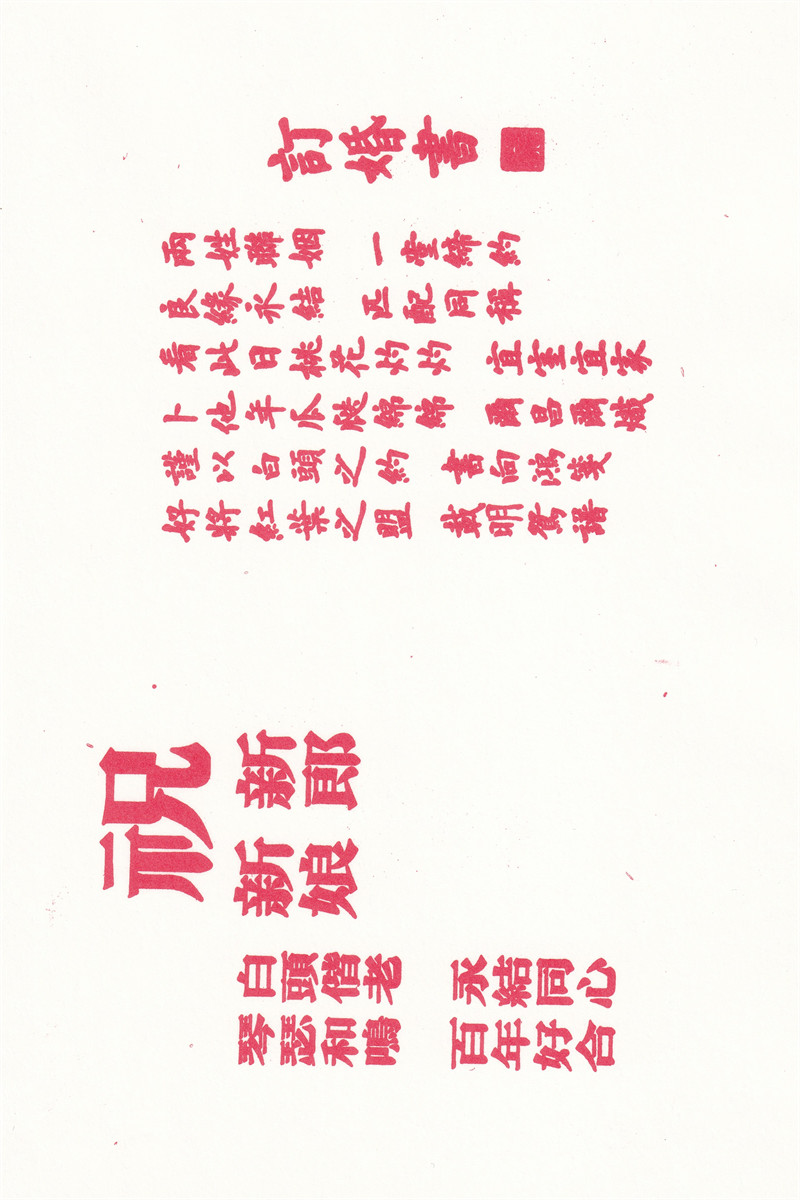 訂婚書
兩姓聯姻 一堂締約
良緣永結 匹配同稱
看此日桃花灼灼 宜室宜家
卜他年瓜瓞綿綿 爾昌爾熾
謹以白頭之約 書向鴻箋
好將紅葉之盟 載明鴛譜
祝
新郎
新娘
白頭偕老 永結同心
琴瑟和鳴 百年好合